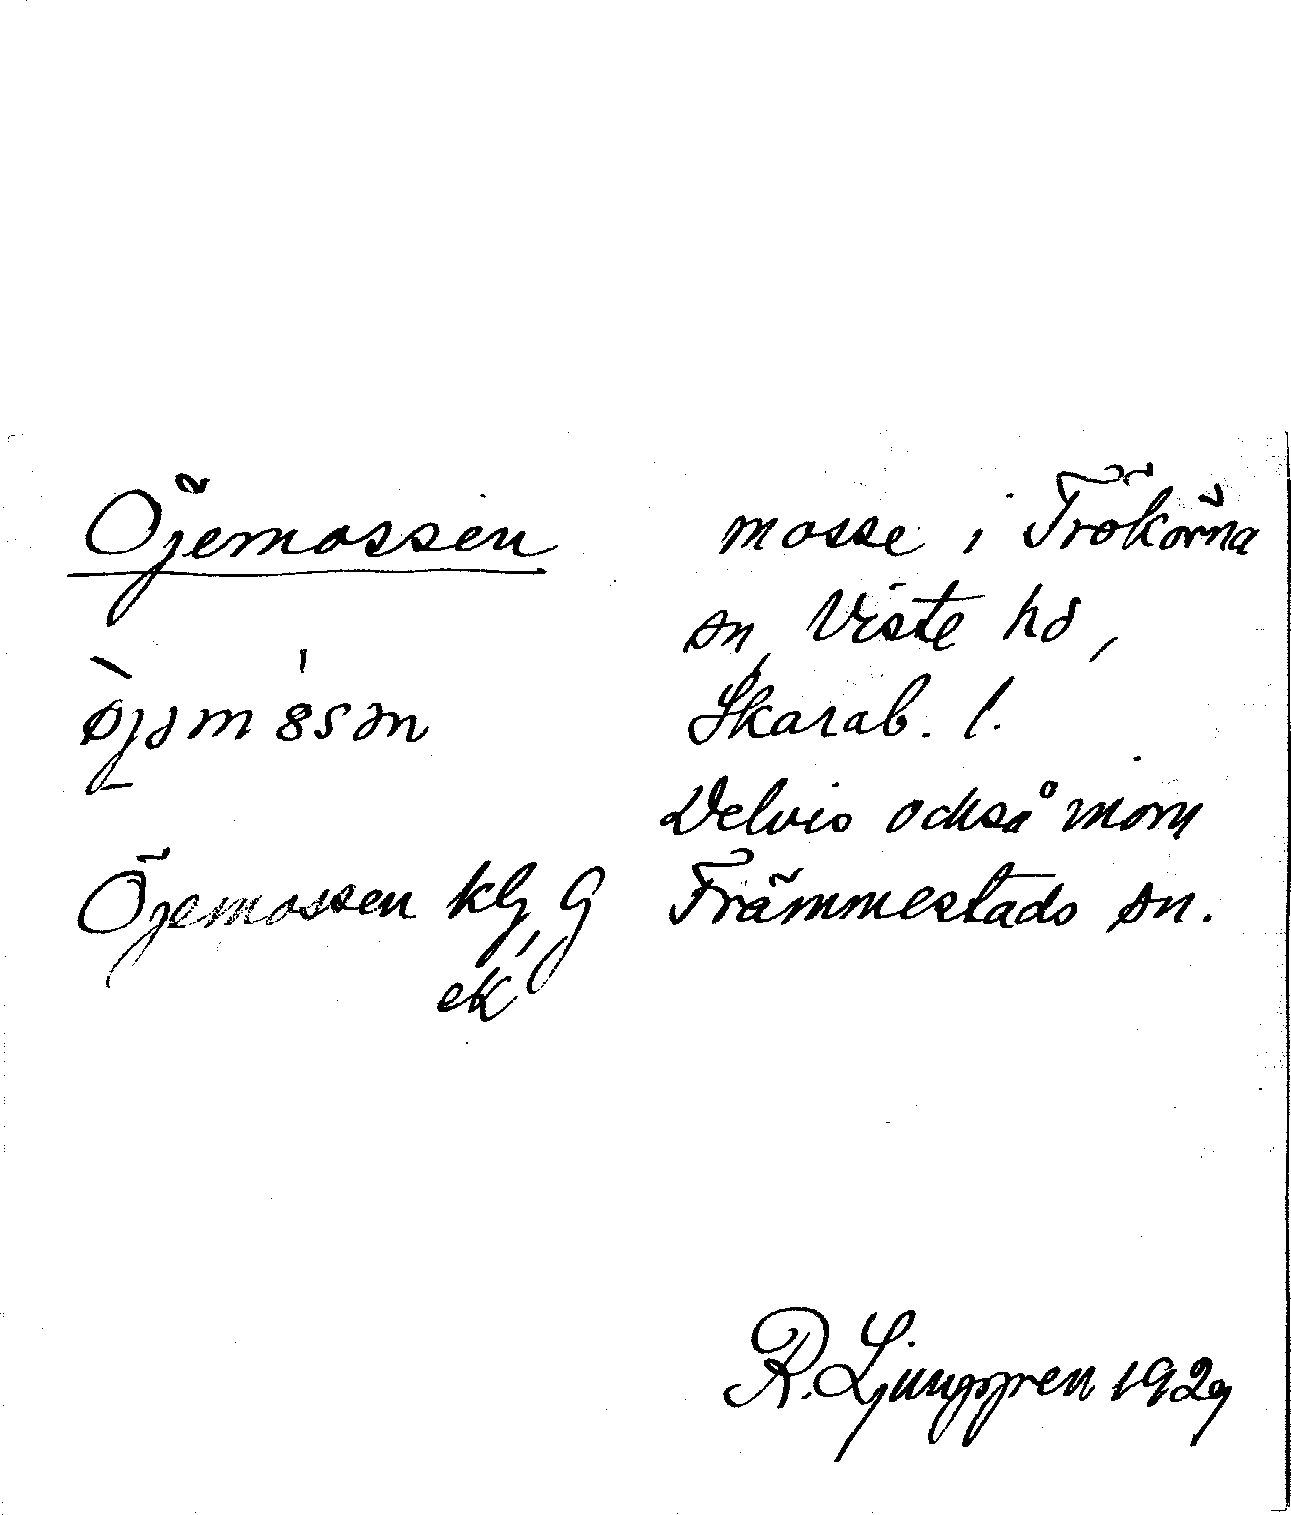 Öjemossen
mosse i Trökörna
sn, Viste hd,
Skarab. l.
Delvis också inom
Främmestads sn.
Öjemossen klj, G
ek
R. Ljunggren 1929